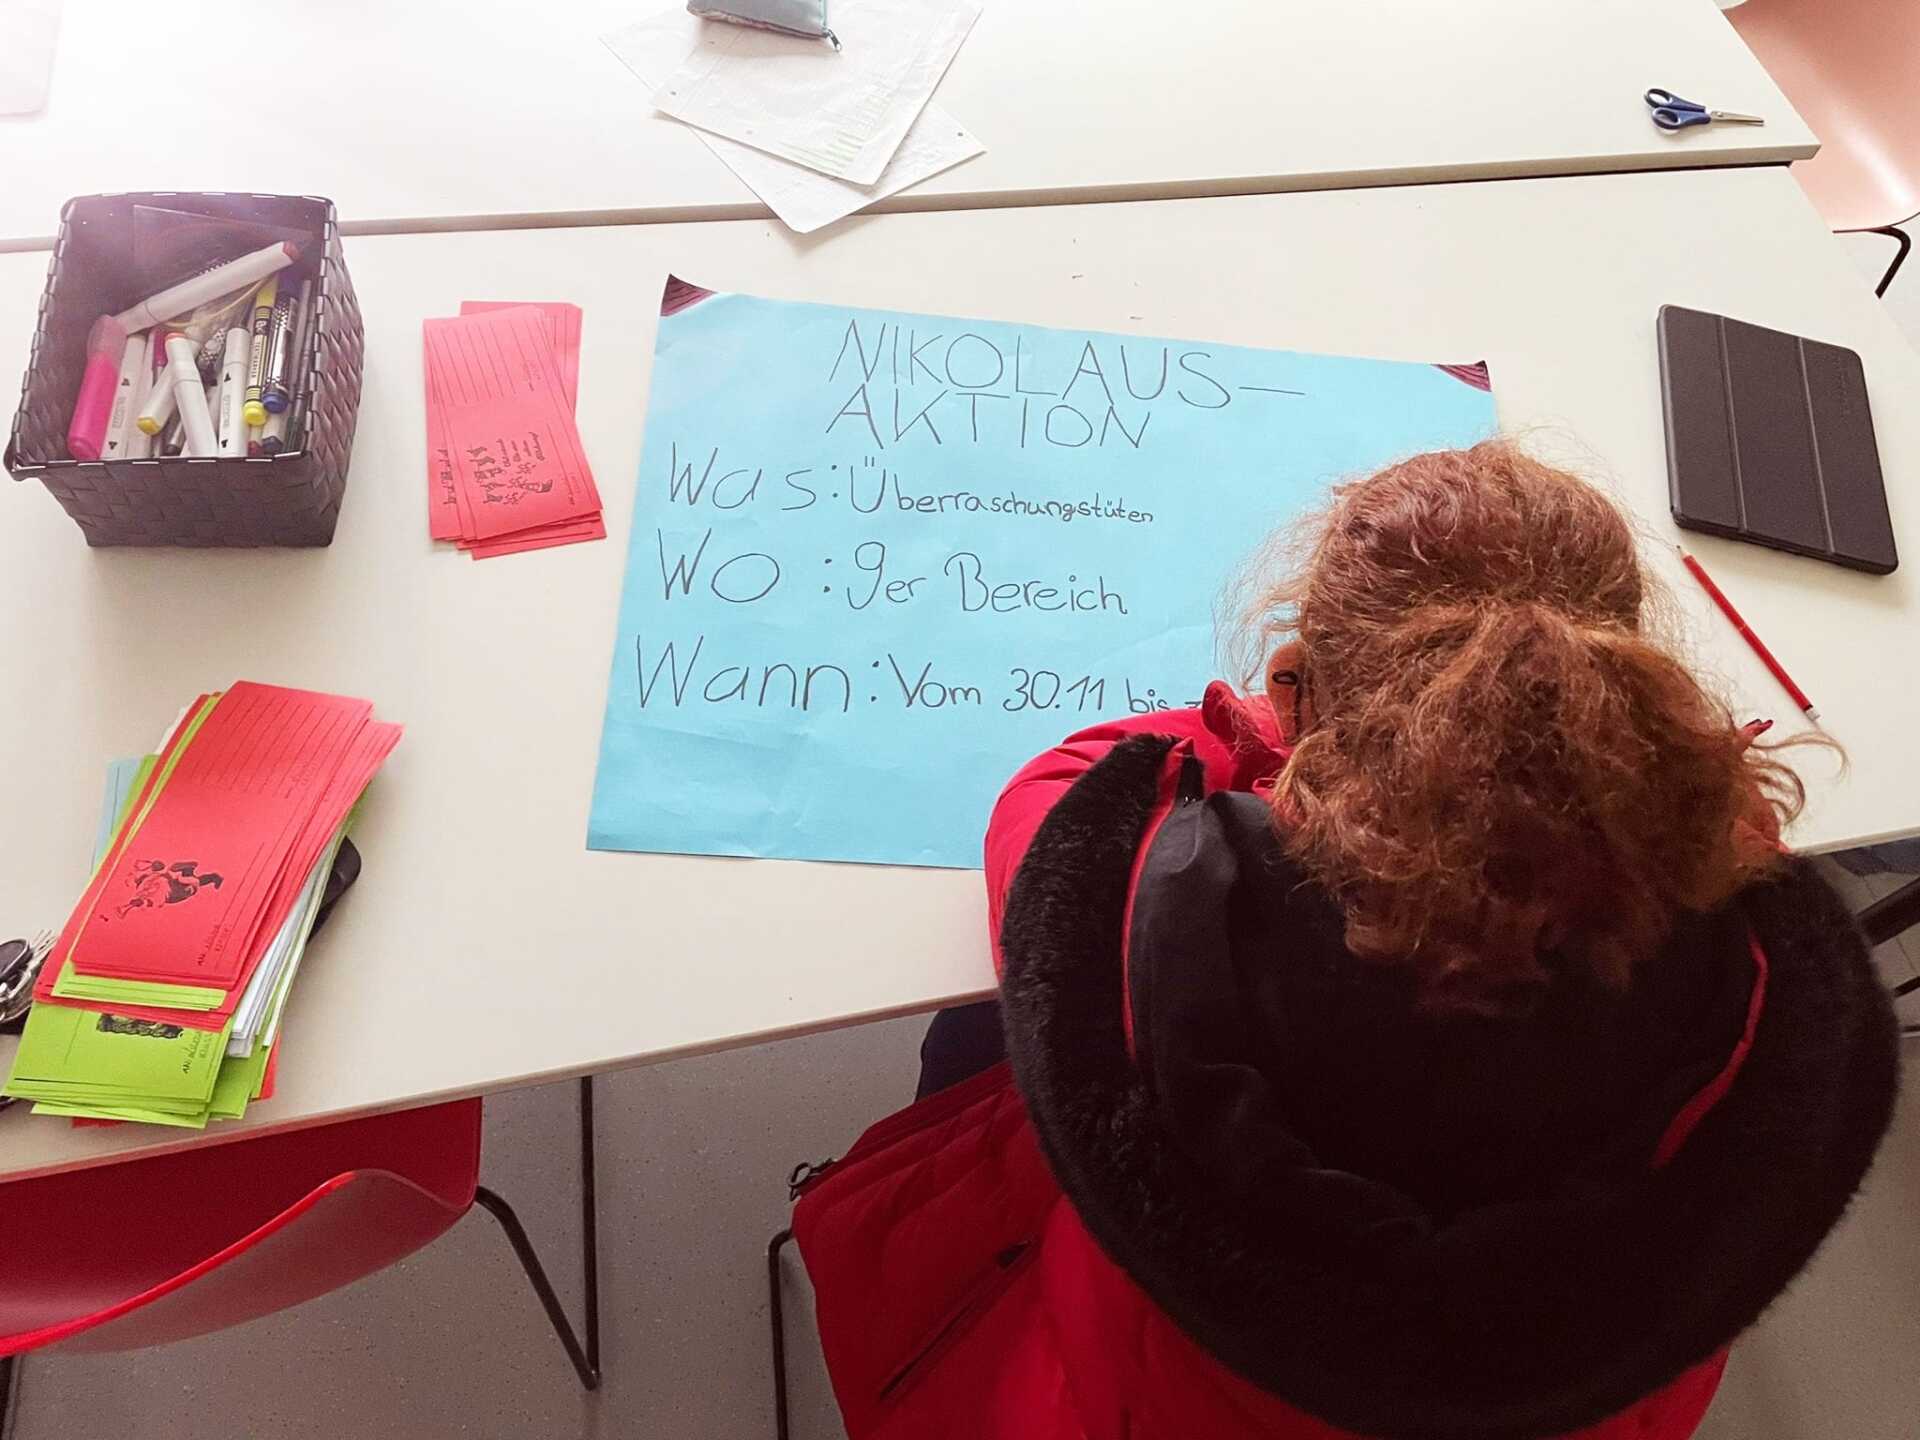 NIKOLAUS-
AKTION
Was: Überraschungstüten
Wo: 9er Bereich
Wann: Vom 30.11 bis